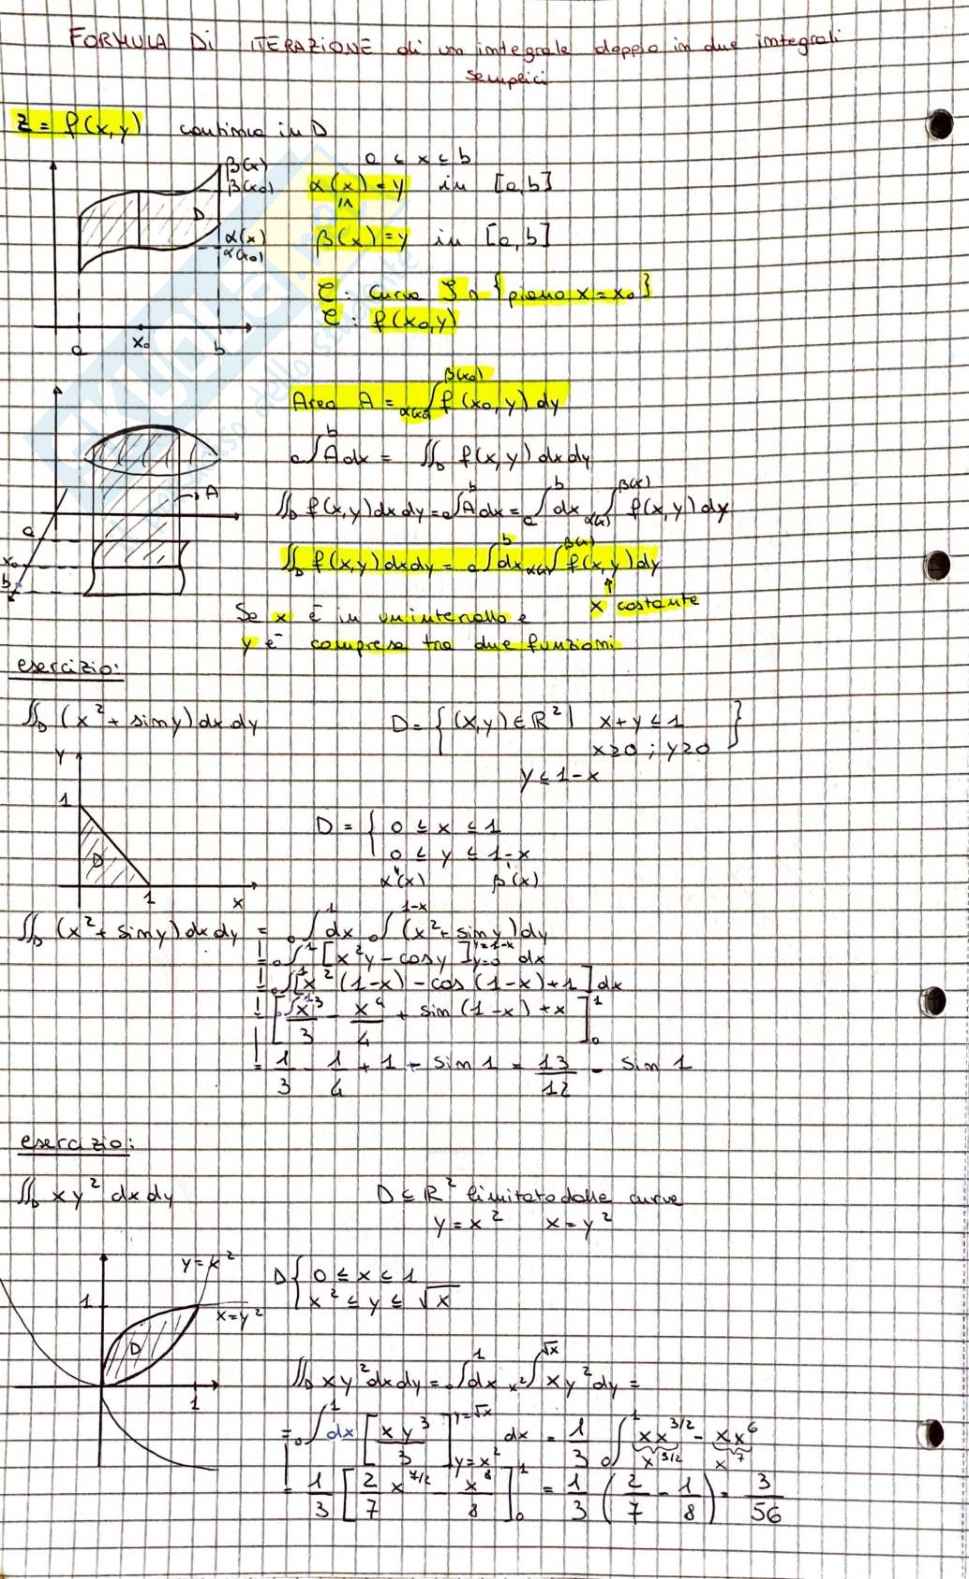 FORMULA Di iTERAZiONE di un integrale doppio in due integrali
semplici
z = f(x,y) continua in D
β(x)
β(x₀)
D
α(x)
α(x₀)
a x₀ b
a ≤ x ≤ b
α(x) = y in [a,b]
β(x) = y in [a,b]
curva ∩ {piano x = x₀}
: f(x₀,y)
Area A = α(x₀)∫β(x₀) f(x₀,y) dy
a∫b A dx = ∬D f(x,y) dx dy
A
a
x₀
b
∬D f(x,y) dx dy = a∫b A dx = a∫b dx α(x)∫β(x) f(x,y) dy
∬D f(x,y) dx dy = a∫b dx α(x)∫β(x) f(x,y) dy
↑
x costante
Se x è in un intervallo e
y è compresa tra due funzioni
esercizio:
∬D (x² + sin y) dx dy D = {(x,y) ∈ ℝ² | x + y ≤ 1
x ≥ 0 ; y ≥ 0 }
y ≤ 1 - x
Y
1
D
1 x
D = { 0 ≤ x ≤ 1
0 ≤ y ≤ 1 - x
α(x) β(x)
∬D (x² + sin y) dx dy = 0∫1 dx 0∫1-x (x² + sin y) dy
= 0∫1 [x²y - cos y]y=0 y=1-x dx
= 0∫1 [x²(1-x) - cos(1-x) + 1] dx
= [x³/3 - x⁴/4 + sin(1-x) + x]0 1
= 1/3 - 1/4 + 1 - sin 1 = 13/12 - sin 1
esercizio:
∬D xy² dx dy D ⊆ ℝ² limitato dalle curve
y = x² x = y²
y = x²
1
x = y²
D
1
D { 0 ≤ x ≤ 1
x² ≤ y ≤ √x
∬D xy² dx dy = 0∫1 dx x²∫√x xy² dy =
= 0∫1 dx [xy³/3]y=x² y=√x dx = 1/3 0∫1 xx^3/2 - xx⁶
x^5/2 x⁷
= 1/3 [2/7 x^7/2 - x⁸/8]0 1 = 1/3 (2/7 - 1/8) = 3/56